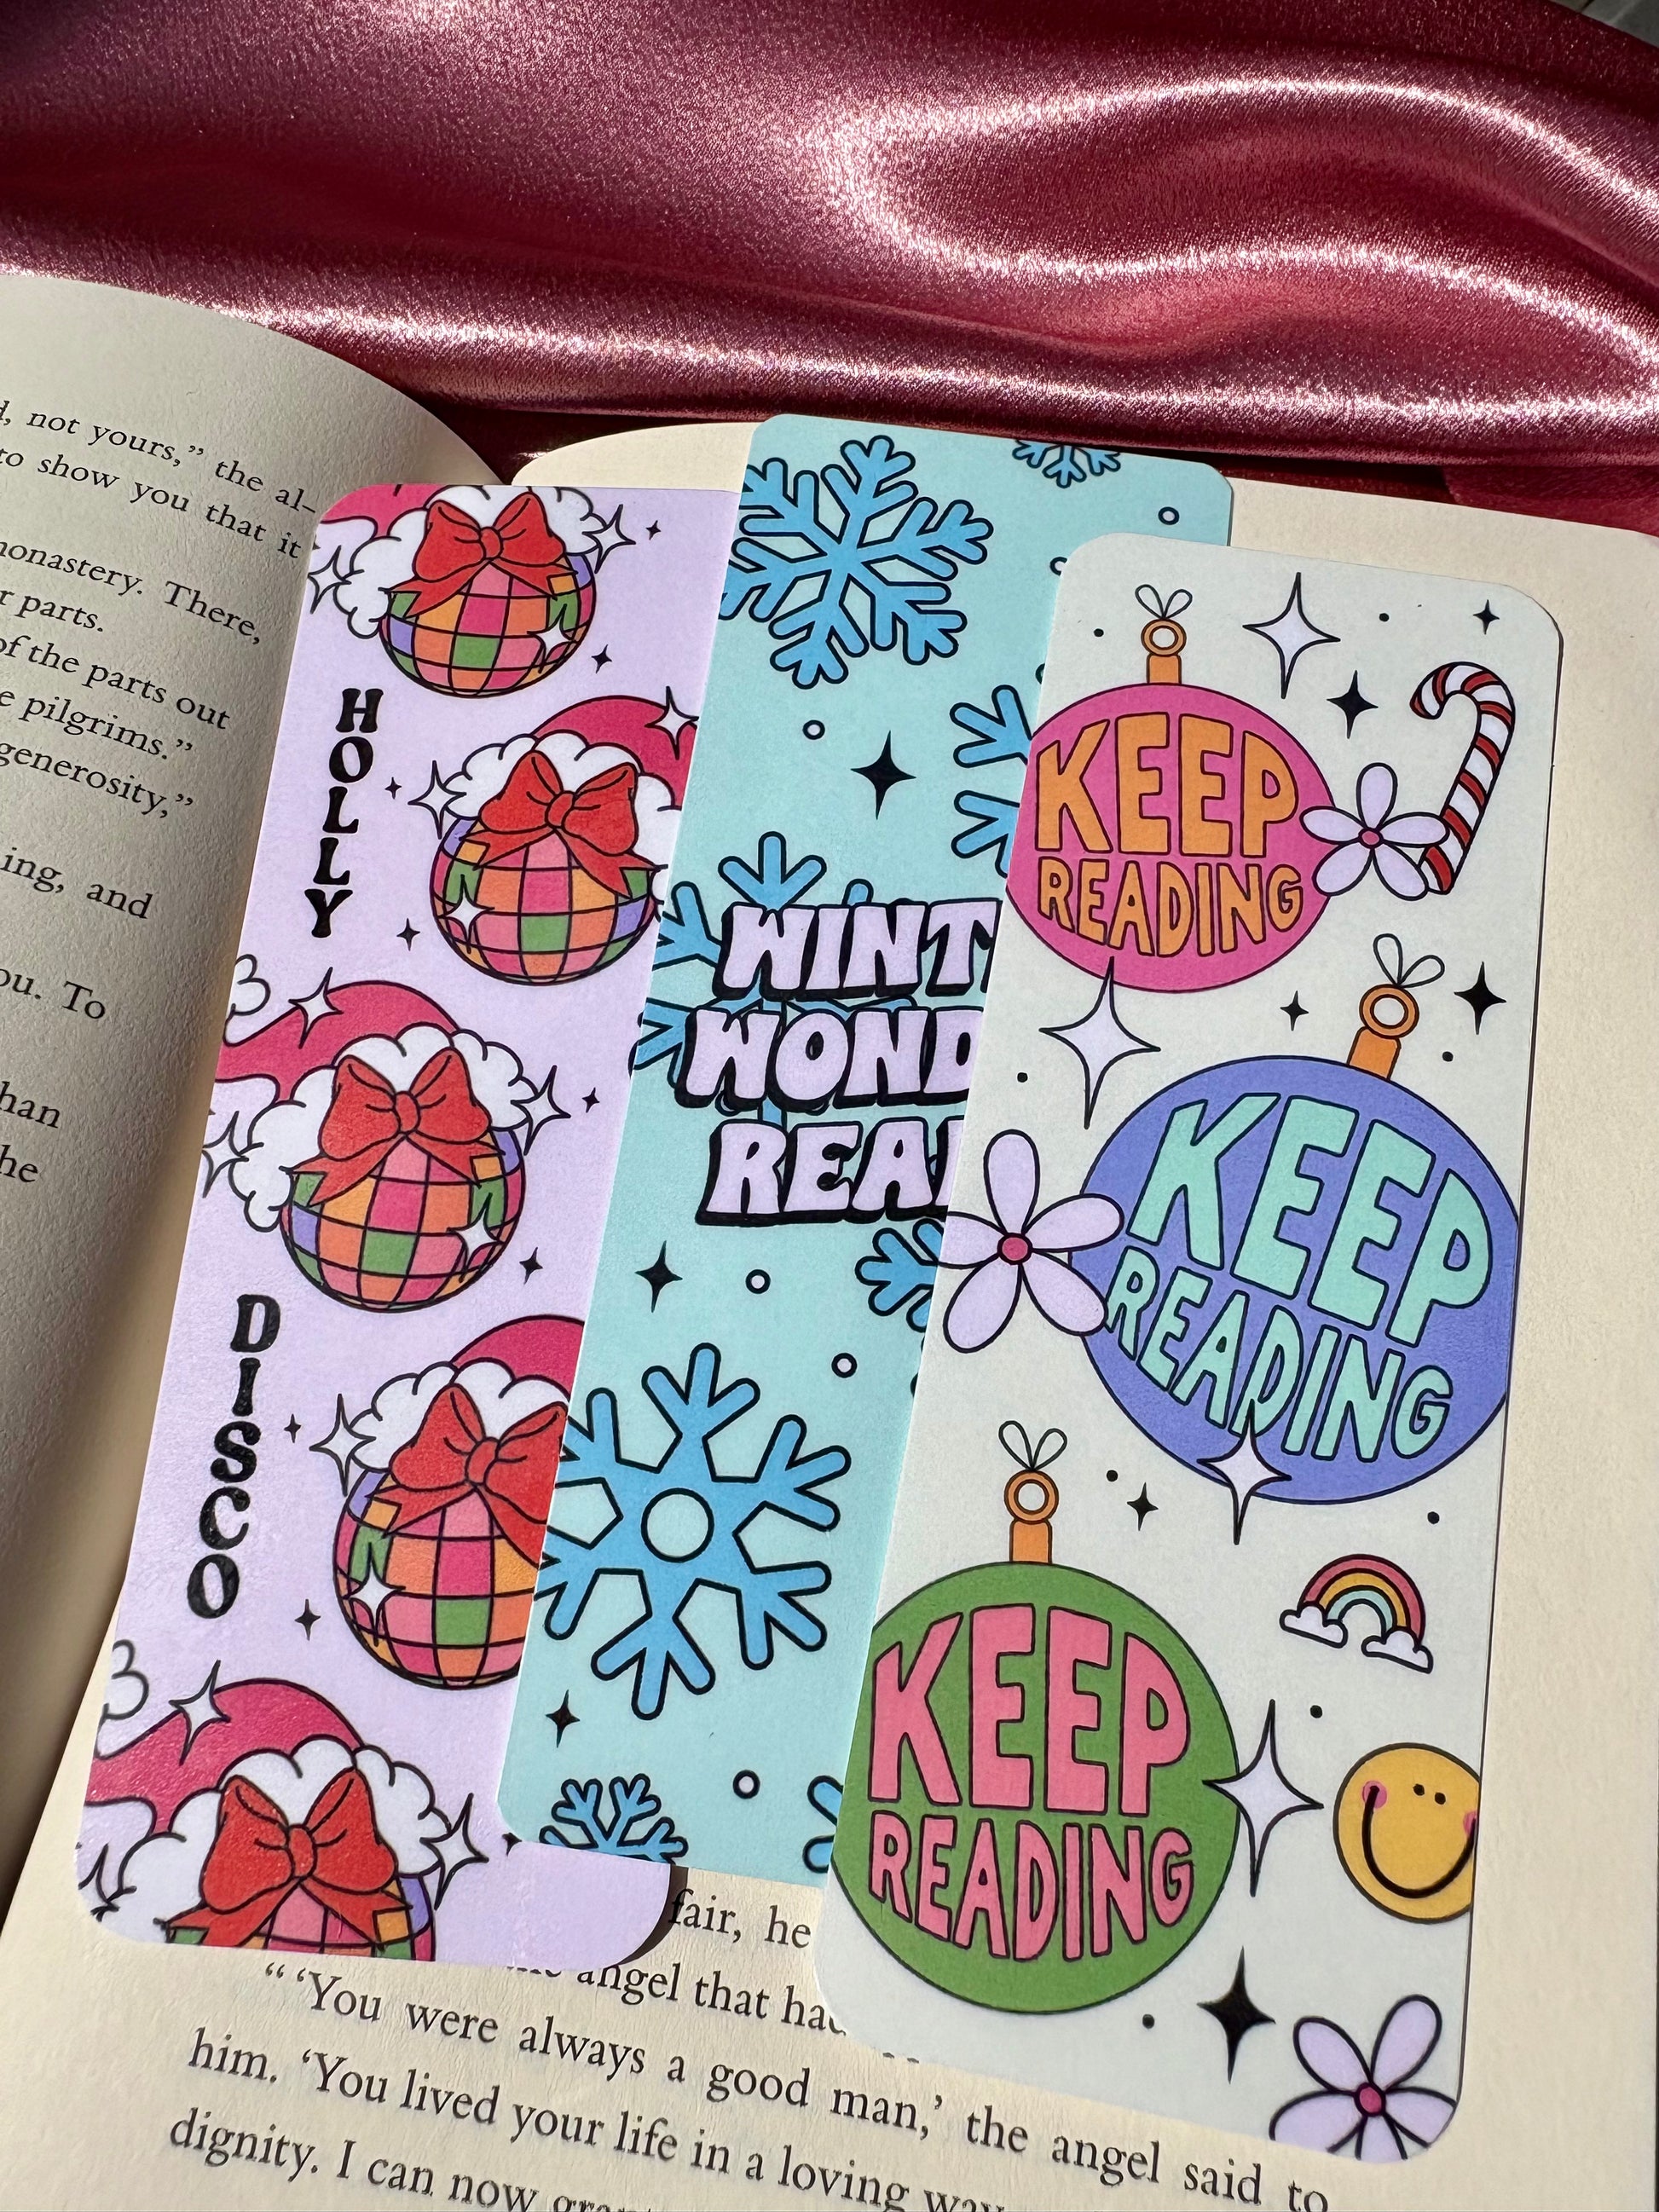 not yours,” the al-
to show you that it
monastery. There,
parts.
of the parts out
pilgrims.”
generosity,”
ing, and
ou. To
han
he
HOLLY
DISCO
WINT
WOND
REA
KEEP
READING
KEEP
READING
KEEP
READING
fair, he
angel that had
“ ‘You were always a good man,’ the angel said to
him. ‘You lived your life in a loving way
dignity. I can now